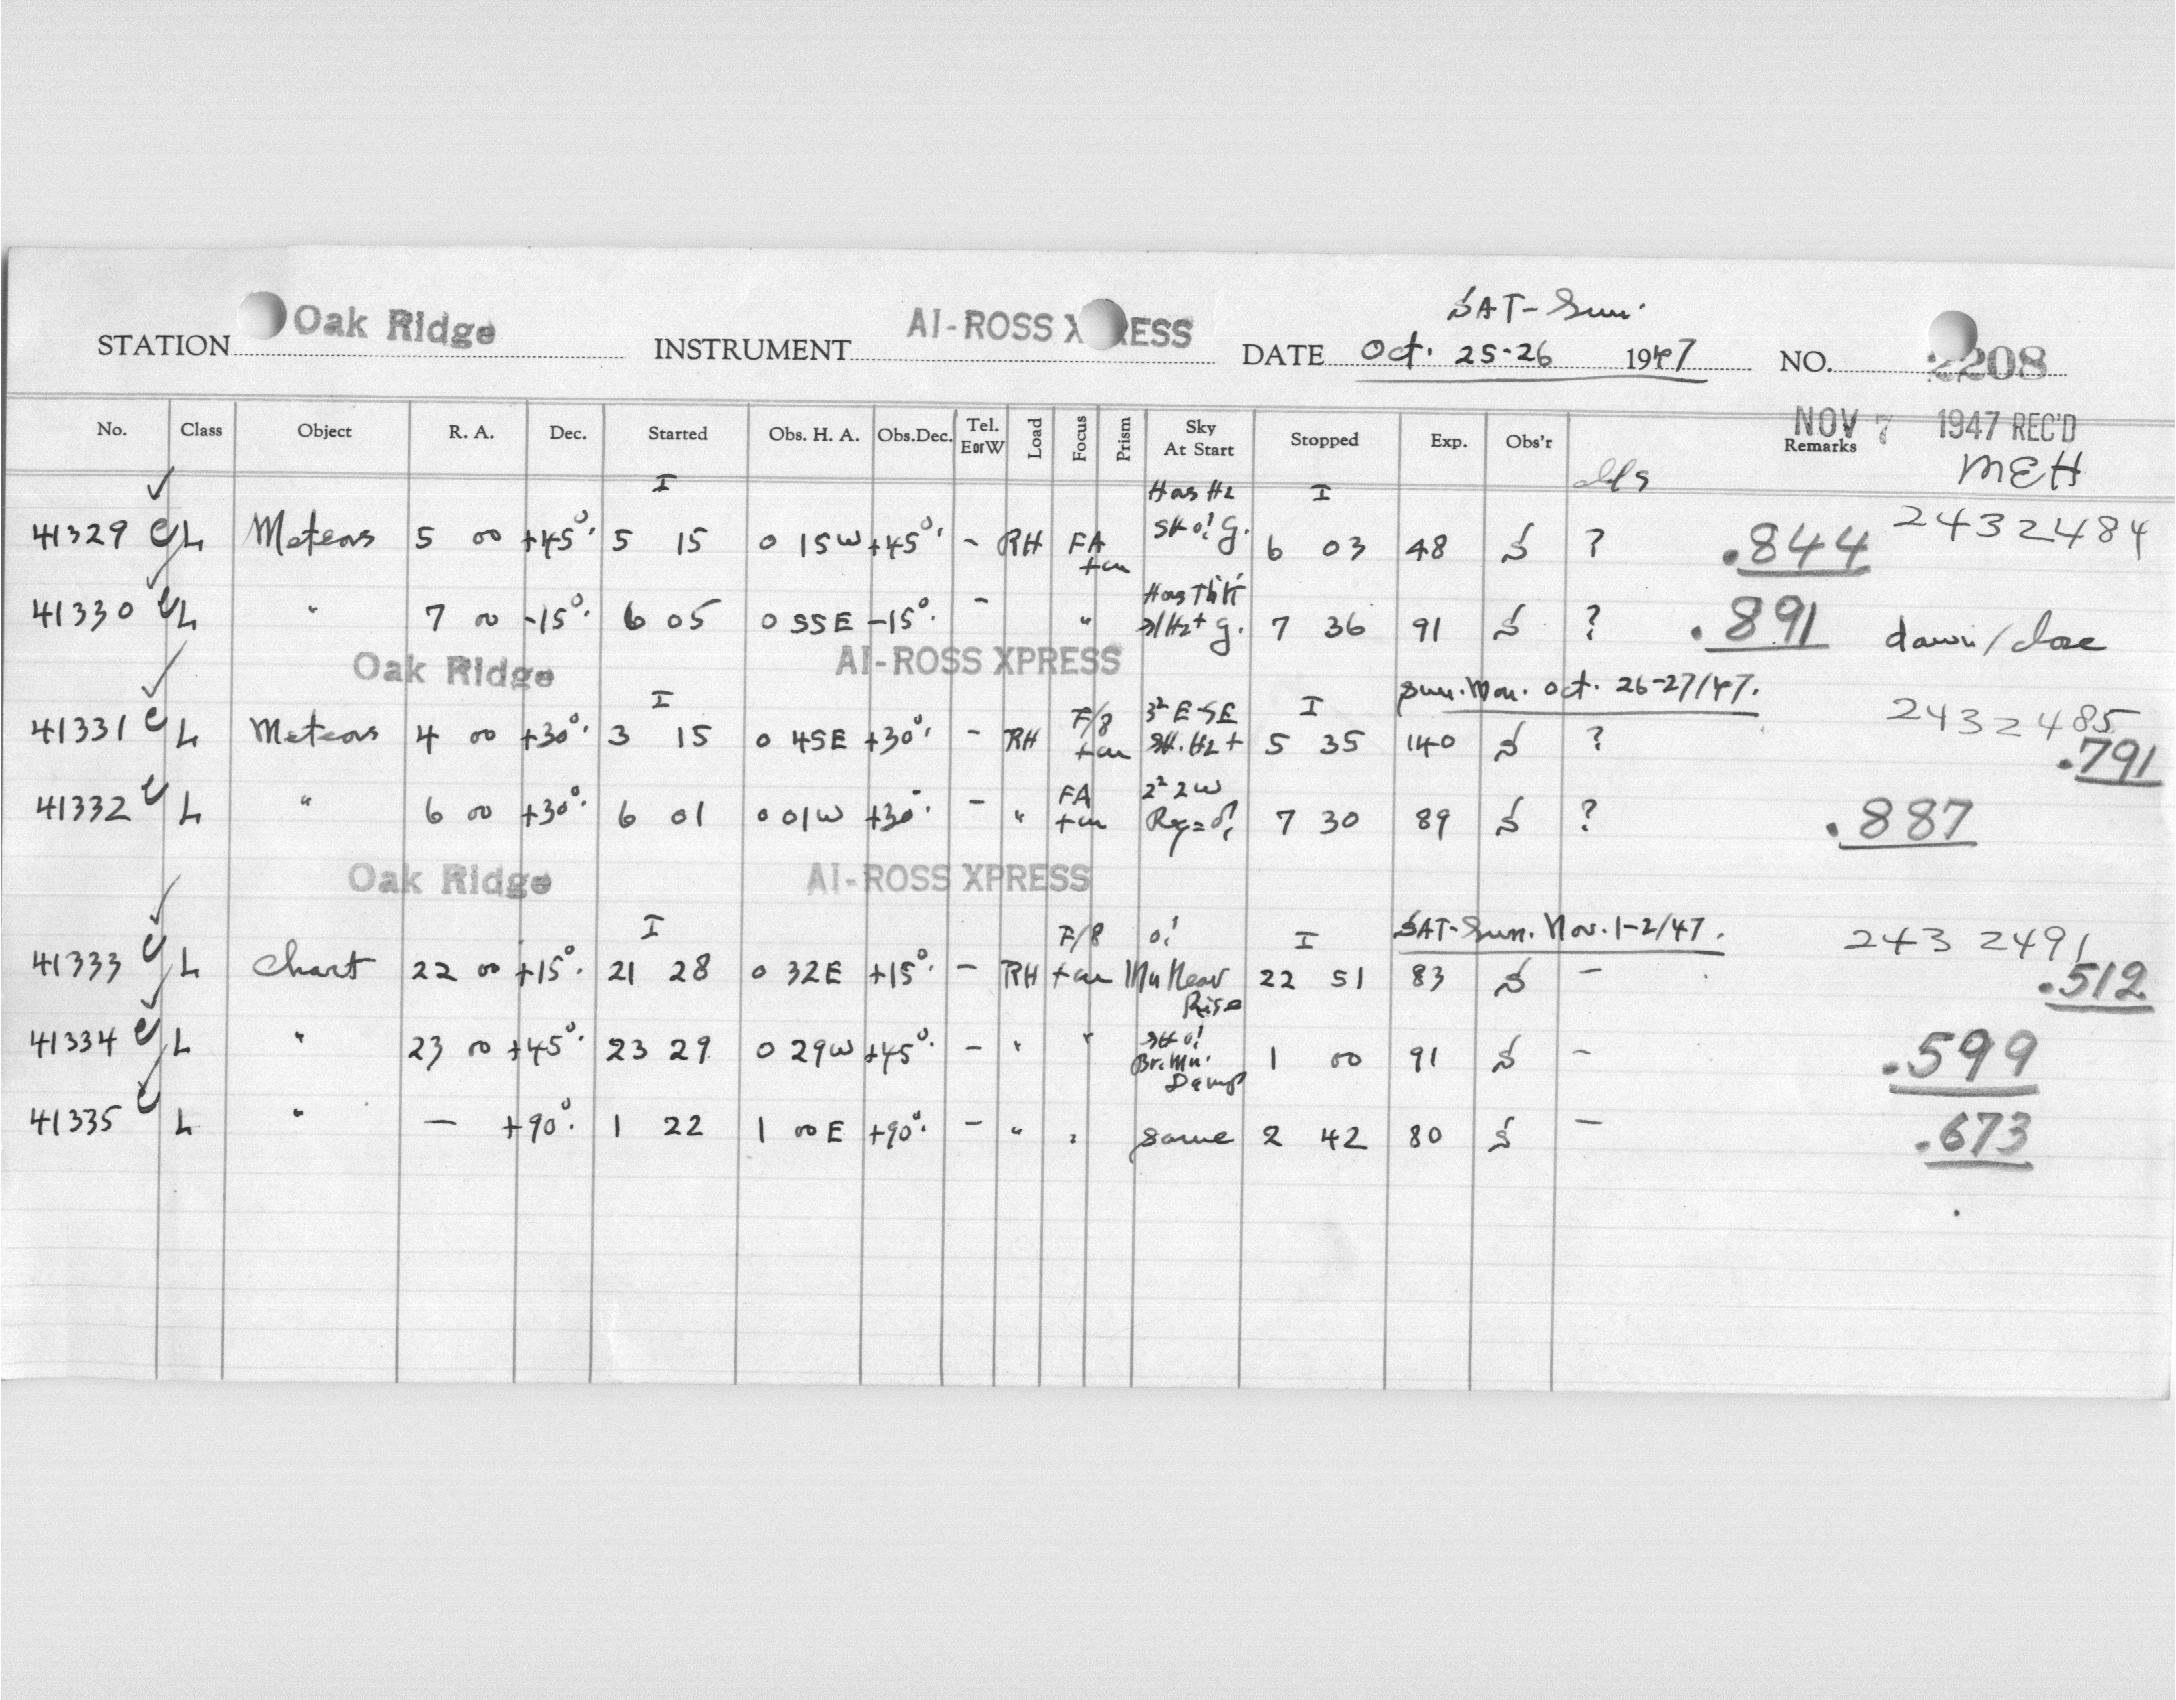 SAT-Sun.
STATION Oak Ridge INSTRUMENT AI-ROSS X RESS DATE Oct. 25-26 1947 NO. 2208
NOV 7 1947 REC'D
No. Class Object R. A. Dec. Started Obs. H. A. Obs.Dec. Tel. E or W Load Focus Prism Sky At Start Stopped Exp. Obs'r Remarks
MEH
I I
41329 L Meteors 5 00 +45°. 5 15 0 15W +45°. - RH FA 6 03 48 S ? .844 2432484
41330 L " 7 00 -15°. 6 05 0 55E -15°. - " 7 36 91 S ? .891 dawn/close
Oak Ridge AI-ROSS XPRESS
Sun.Mon. Oct. 26-27/47.
I I
41331 L Meteors 4 00 +30°. 3 15 0 45E +30°. - RH F/8 5 35 140 S ? 2432485
.791
41332 L " 6 00 +30°. 6 01 0 01W +30°. - " FA 7 30 89 S ? .887
Oak Ridge AI-ROSS XPRESS
SAT-Sun. Nov. 1-2/47.
I I
41333 L Chart 22 00 +15°. 21 28 0 32E +15°. - RH F/8 Mn Near Rise 22 51 83 S - 2432491
.512
41334 L " 23 00 +45°. 23 29 0 29W +45°. - " " Br. Mn. Damp 1 00 91 S - .599
41335 L " - +90°. 1 22 1 00E +90°. - " " same 2 42 80 S - .673